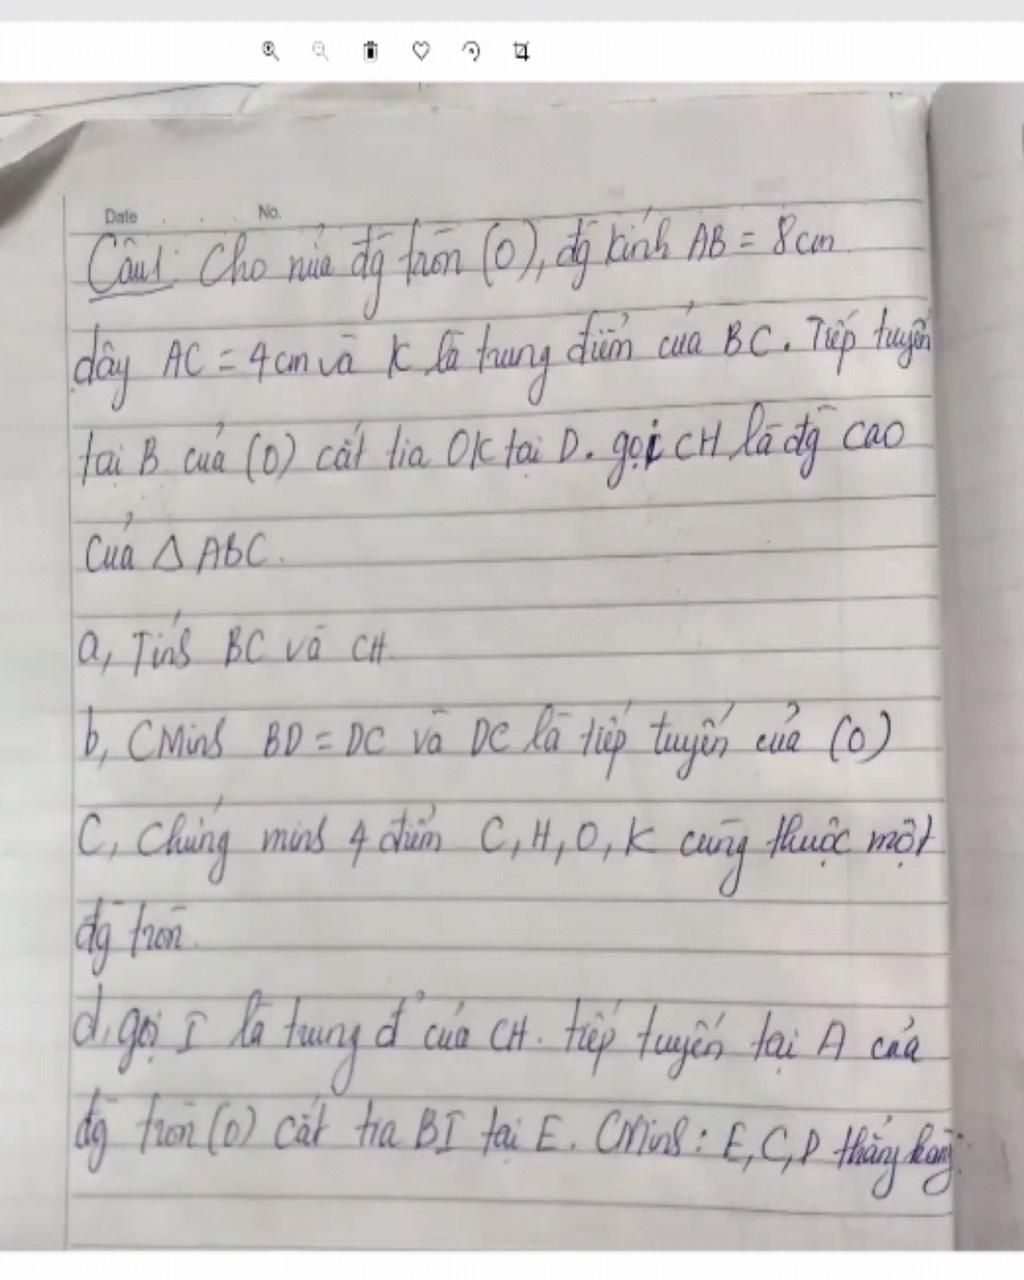 Date No.
Câu1: Cho nửa đg tròn (O), đg kính AB = 8cm
dây AC = 4cm và K là trung điểm của BC. Tiếp tuyến
tại B của (O) cắt tia OK tại D. gọi CH là đg cao
của Δ ABC.
a, Tính BC và CH.
b, CMinh BD = DC và DC là tiếp tuyến của (O)
C, Chứng minh 4 điểm C, H, O, K cùng thuộc một
đg tròn.
d, gọi I là trung đ' của CH. tiếp tuyến tại A của
đg tròn (O) cắt tia BI tại E. CMinh: E, C, D thẳng hàng.